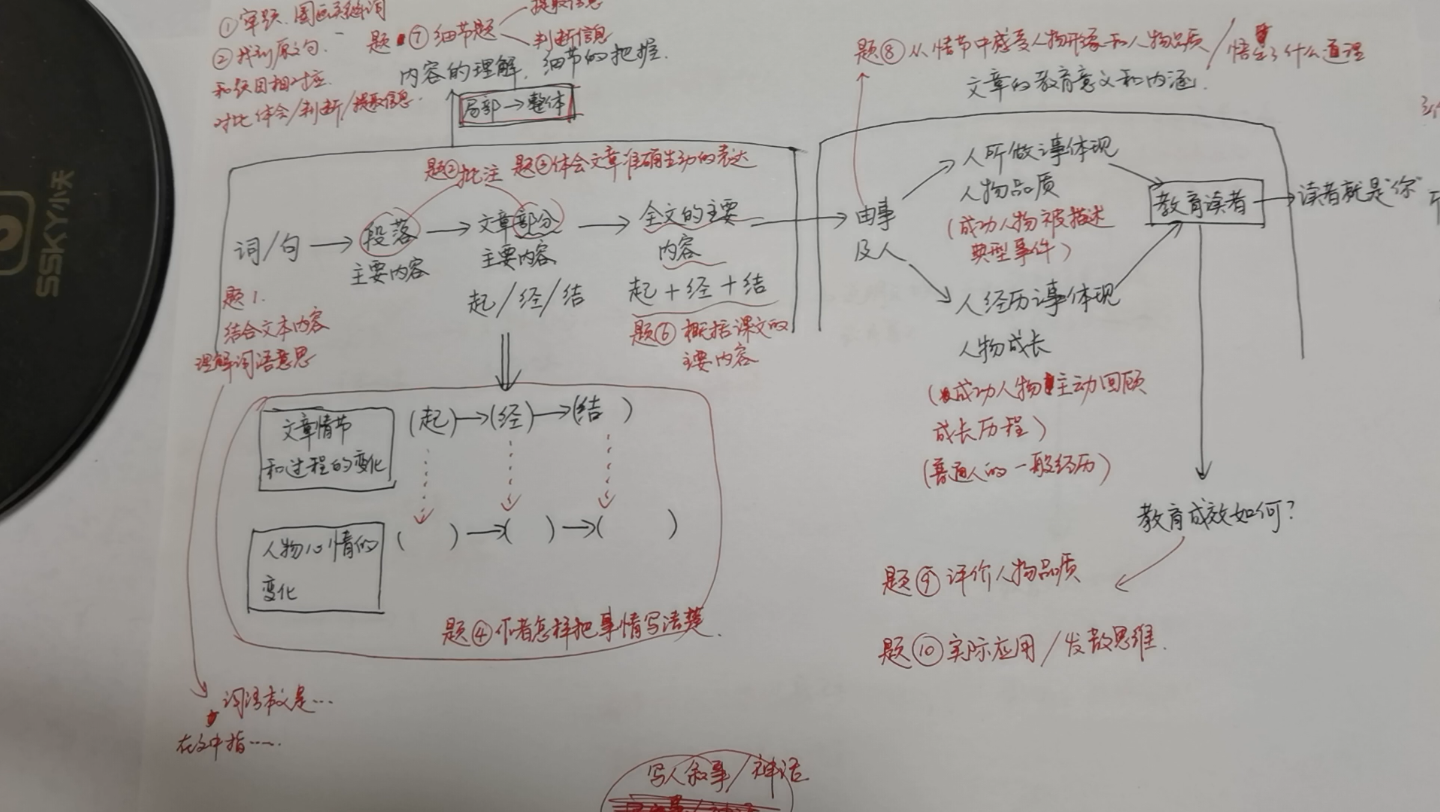 ①审题、圈画关键词
②找到原文句
和题目相对应
对比体会/判断/提取信息.
题⑦细节题
提取信息
判断信息
内容的理解,细节的把握.
局部→整体
题②批注
题③体会文章准确生动的表达
词/句
段落
主要内容
文章部分
主要内容
起/经/结
全文的主要
内容
起+经+结
题⑥概括课文的
主要内容
题1.
结合文本内容
理解词语意思
文章情节
和过程的变化
(起)→(经)→(结 )
人物心情的
变化
( )→( )→( )
题④作者怎样把事情写清楚.
词语本义是…
在文中指……
题⑧从情节中感受人物形象和人物品质/悟出了什么道理
文章的教育意义和内涵.
由事
及人
人所做之事体现
人物品质
(成功人物被描述
典型事件)
人经历之事体现
人物成长
(成功人物主动回顾
成长历程)
(普通人的一般经历)
教育读者
读者就是“你”
教育成效如何?
题⑨评价人物品质
题⑩实际应用/发散思维.
写人叙事/神话
SSKYY小天